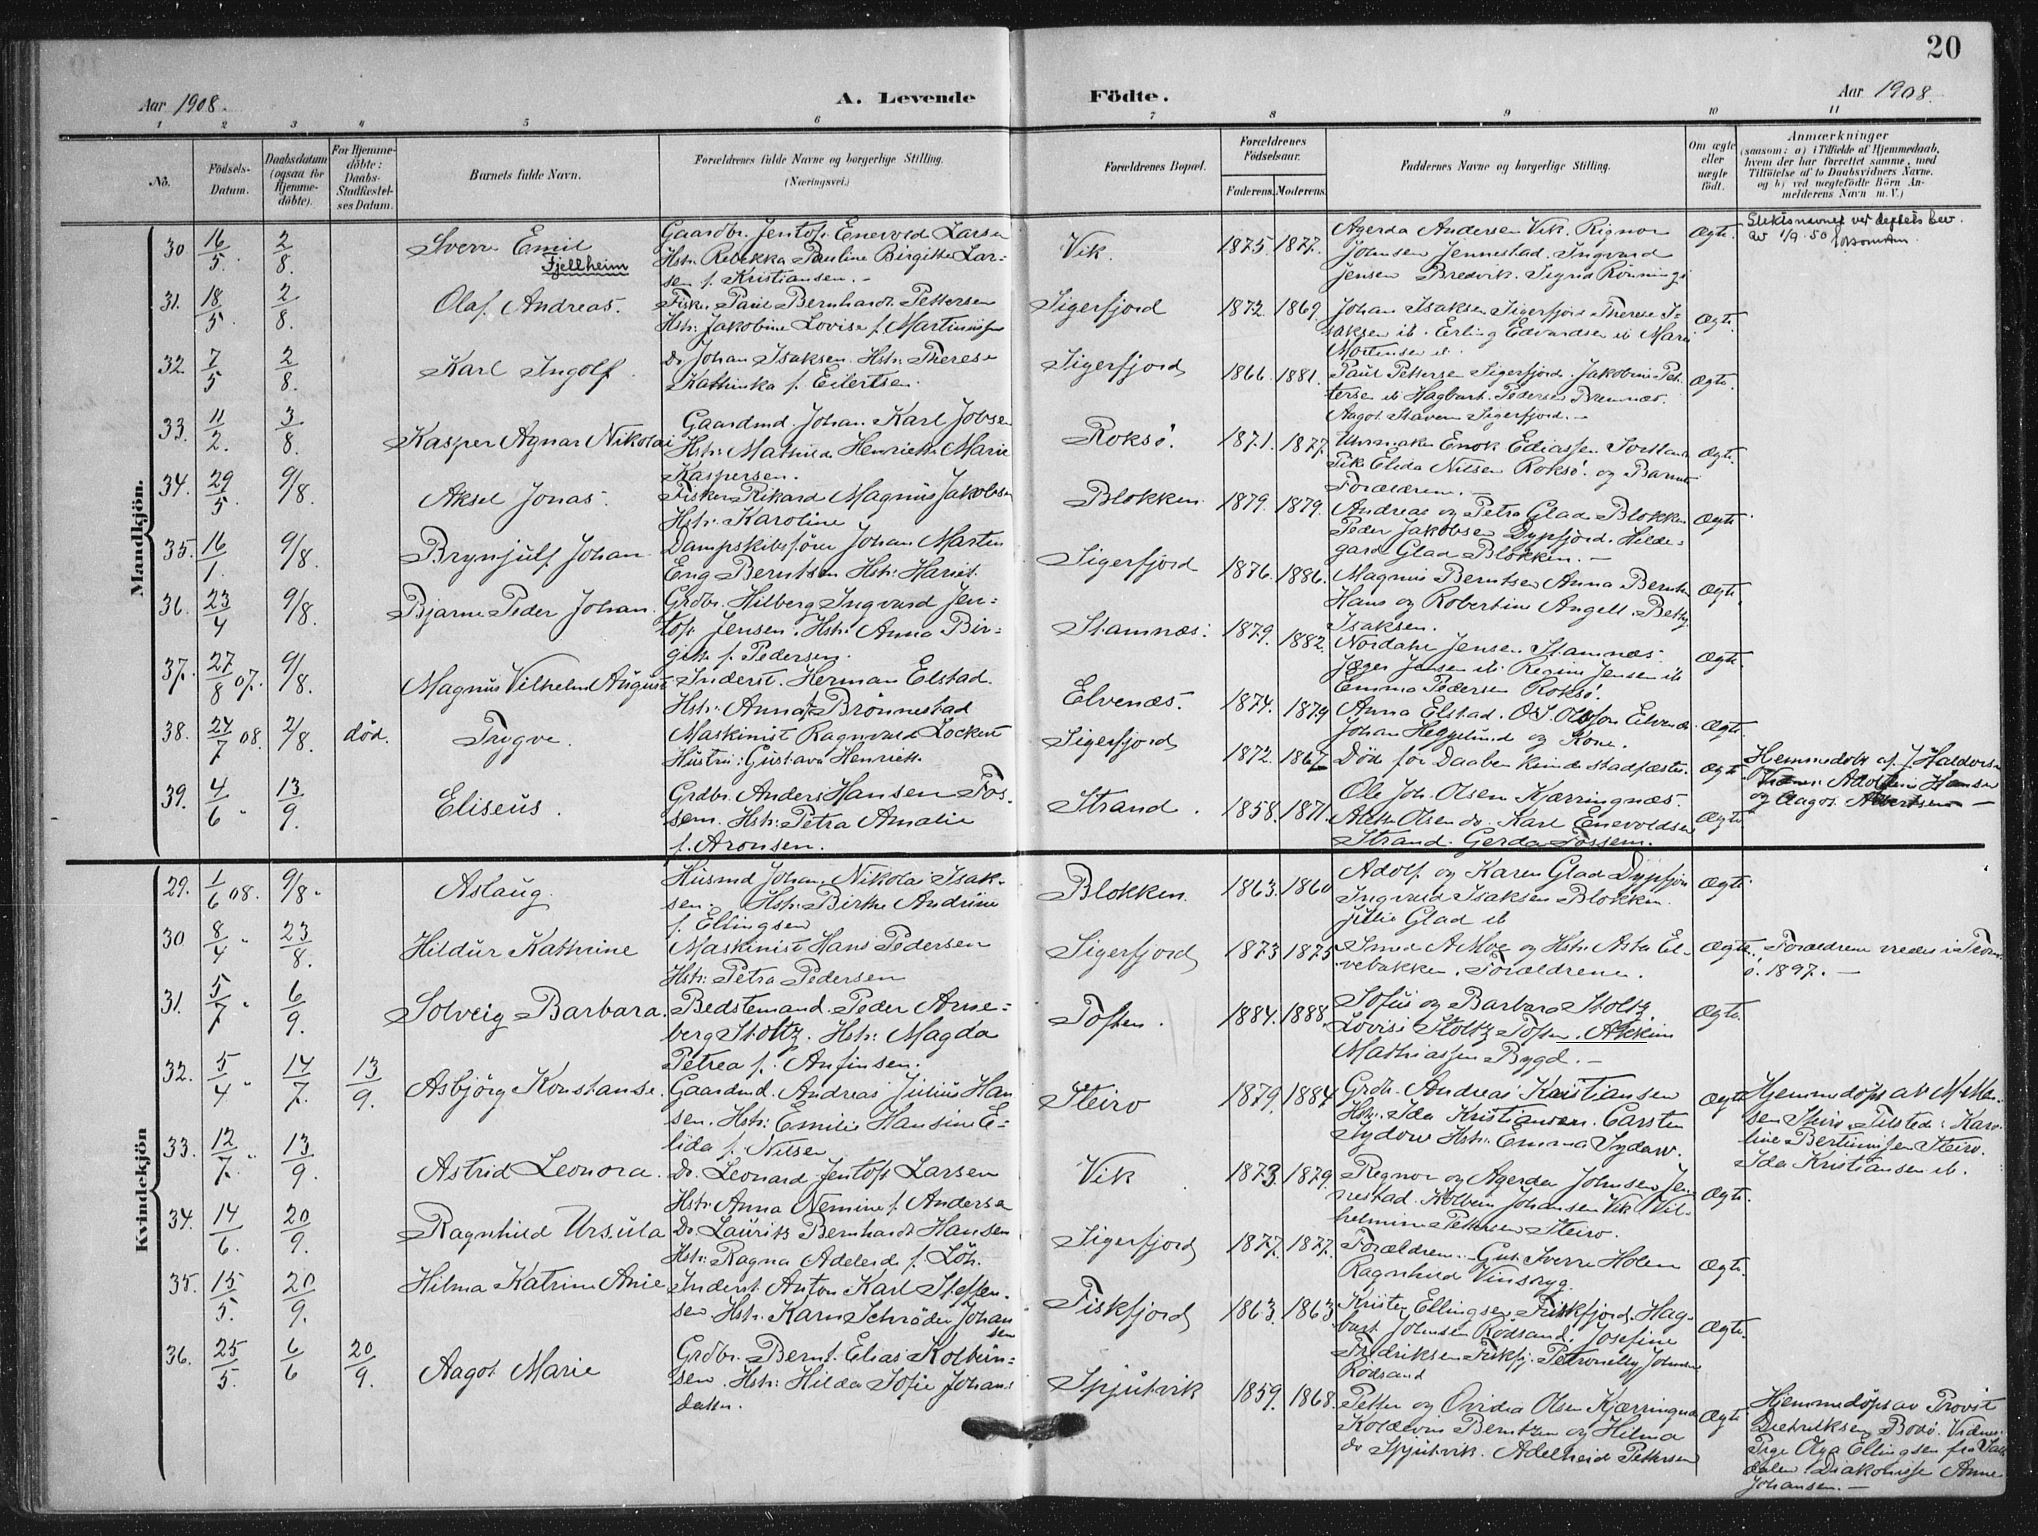 20
Aar 1908.
A. Levende
Födte.
Aar 1908.
1 2 3 4 5 6 7 8 9 10 11
No.
Födsels-Datum.
Daabsdatum (ogsaa for Hjemmedöbte).
For Hjemmedöbte: Daabs-Stadfæstelses Datum.
Barnets fulde Navn.
Forældrenes fulde Navne og borgerlige Stilling.
(Næringsvei.)
Forældrenes Bopæl.
Forældrenes Födselsaar.
Faderens. Moderens.
Faddernes Navne og borgerlige Stilling.
Om ægte eller uægte födt.
Anmærkninger
(saasom: a) i Tilfælde af Hjemmedaab, hvem der har forrettet samme, med Tilföielse af to Daabsvidners Navne, og b) ved uægtefödte Börn Anmelderens Navn m. V.)
Mandkjön.
30. 16/5. 2/8. Sverre Emil
Fjellheim
Gaardbr. Jentoft Enevold Larsen
Hstr. Rebekka Pauline Birgitte Lar-
sen f. Kristiansen.
Vik. 1875. 1877.
Agerda Andersen Vik. Rignor
Johnsen Jennestad. Ingvard
Jensen Bredvik. Sigrid Rönning
Ægte.
Slektsnavnet ved
av 1/9. 50
31. 18/5. 2/8. Olaf Andreas.
Fisk. Paul Bernhardt Pettersen
Hstr. Jakobine Lovise f. Martinussen
Sigerfjord 1872. 1869.
Johan Isaksen Sigerfjord Therese I-
saksen ib. Erling Edvardsen ib Marie
Mortensen ib.
Ægte.
32 7/5 2/8. Karl Ingolf.
Do Johan Isaksen. Hstr. Therese
Kathinka f. Eilertsen.
Sigerfjord 1866. 1881.
Paul Pettersen Sigerfjord. Jakobine Pet-
tersen ib Hagbart Pedersen Bremnæs.
Aagot Staven Sigerfjord.
Ægte.
33. 11/2. 3/8. Kasper Agnar Nikolai
Gaardmd. Johan Karl Jobsen
Hstr. Mathilde Henriette Marie
Kaspersen.
Roksö. 1871. 1877.
Uhrmaker Enok Ediassen Sortland
Pike Elida Nilsen Roksö. og Barnets
Forældrene.
Ægte.
34. 29/5 9/8. Aksel Jonas.
Fisker Rikard Magnus Jakobsen
Hstr. Karoline
Blokken 1879. 1879.
Andreas og Petra Glad Blokken
Peder Jakobsen Dypfjord. Hilde-
gard Glad Blokken.
Ægte.
35. 16/1. 9/8. Brynjulf Johan
Dampskibsförer Johan Martin
Eng Berntsen Hstr. Hariet.
Sigerfjord 1876. 1886.
Magnus Berntsen Anna Berntsen
Hans og Robertine Angell. Betty
Isaksen.
Ægte.
36. 23/4 9/8. Bjarne Peder Johan.
Grdbr. Hilberg Ingvard Jen-
toft Jensen. Hstr. Anna Bir-
gitte f. Pedersen.
Stamnæs. 1879. 1882.
Nordahl Jensen Stamnæs.
Jæger Jensen ib. Regine Jensen ib
Emma Pedersen Roksö.
Ægte.
37. 27/8 07. 9/8. Magnus Vilhelm August
Inderst. Herman Elstad.
Hstr. Anna f. Brönnestad
Elvenæs. 1874. 1879
Anna Elstad. O. J. Olsen Elvenæs
Johan Heggelund og Kone.
Ægte.
38. 27/7 08. 2/8. död. Trygve.
Maskinist Ragnvald Lockert
Hustru: Gustava Henriette
Sigerfjord 1872. 1867
Döde för Daaben kunde stadfæstes.
Ægte
Hemmedöbt af J Haldorsen
Vidner: Adolfine Hansen
og Aagot Albertsen
39. 4/6 " 13/9. Eliseus.
Grdbr. Anders Hansen Fos-
sem. Hstr. Petra Amalie
f. Aronsen.
Strand. 1858. 1871.
Ole Joh. Olsen Kjærringnæs.
Alette Olsen do. Karl Enevoldsen
Strand. Gerda Fossem.
Ægte
Kvindekjön
29. 1/6 08. 9/8. Aslaug.
Husmd Johan Nikolai Isak-
sen. Hstr. Birthe Andrine
f. Ellingsen
Blokken. 1863. 1860
Adolf og Karen Glad Dypfjor
Ingvald Isaksen Blokken.
Julie Glad ib
Ægte.
30 8/4 " 23/8. Hildur Kathrine
Maskinist Hans Pedersen
Hstr. Petra Pedersen
Sigerfjord 1873 1875
Smed A Moe og Hstr. Asta El-
vebakken. Forældrene.
Ægte.
Forældrene viedes i Trom-
sö. 1897.
31. 5/7 " 6/9. Solveig Barbara.
Bedstemand Peder Arne-
berg Stoltz. Hstr. Magda
Petrea f. Anfinsen.
Toften. 1884. 1888.
Sofus og Barbara Stoltz.
Lovise Stoltz Toften.
Mathiassen Bygd.
Ægte.
32. 5/4 " 14/7. 13/9. Asbjörg Konstanse.
Gaardmd. Andreas Julius Han
sen. Hstr. Emilie Hansine E-
lida f. Nilsen
Steiro 1879. 1884
Grdbr. Andreas Kristiansen
Hstr. Ida Kristiansen. Carsten
Sydow Hstr. Emma Sydow.
Ægte
Hjemmedöpt av M. Han-
sen Steiro. Tilstede: Karo-
line Bertinussen Steiro.
Ida Kristiansen ib.
33. 12/7. " 13/9. Astrid Leonora.
Do. Leonard Jentoft Larsen
Hstr. Anna Nemine f. Andersen
Vik 1873. 1879.
Regnor og Agerda Johnsen Jen
nestad. Kolbein Johansen Vik Vil-
helmine Pettersen Steiro.
Ægte.
34. 14/6. 20/9. Ragnhild Ursula
Do. Laurits Bernhardt Hansen
Hstr. Ragna Adeleid f. Löh.
Sigerfjord 1877. 1877.
Forældrene. Gut. Sverre Holen
Ragnhild Vinsryg.
Ægte.
35. 15/5. 20/9. Hilma Katrine Anie
Inderst Anton Karl Steffen-
sen Hstr. Karen Schröder Johan
sen
Fiskfjord 1863. 1863
Krister Ellingsen Fiskfjord. Hag-
bart Johnsen Rödsand. Josefine
Fredriksen Fiskfj. Petronelly Johnsen
Rödsand
Ægte.
36. 25/5. 6/6 20/9. Aagot Marie
Grdbr. Bernt Elias Kolbein-
sen. Hstr. Hilda Sofie Johans
datter.
Spjutvik 1859. 1868.
Petter og Ovidea Olsen Kjærringnæs
Koldevin Berntzen og Hilma
do Spjutvik. Adelheid Pettersen
Ægte
Hjemmedöpt av Provst
Diedriksen Bodö. Vidner:
Pige Olga Ellingsen fra Salt
dalen. Diakonisse Anne
Johansen.